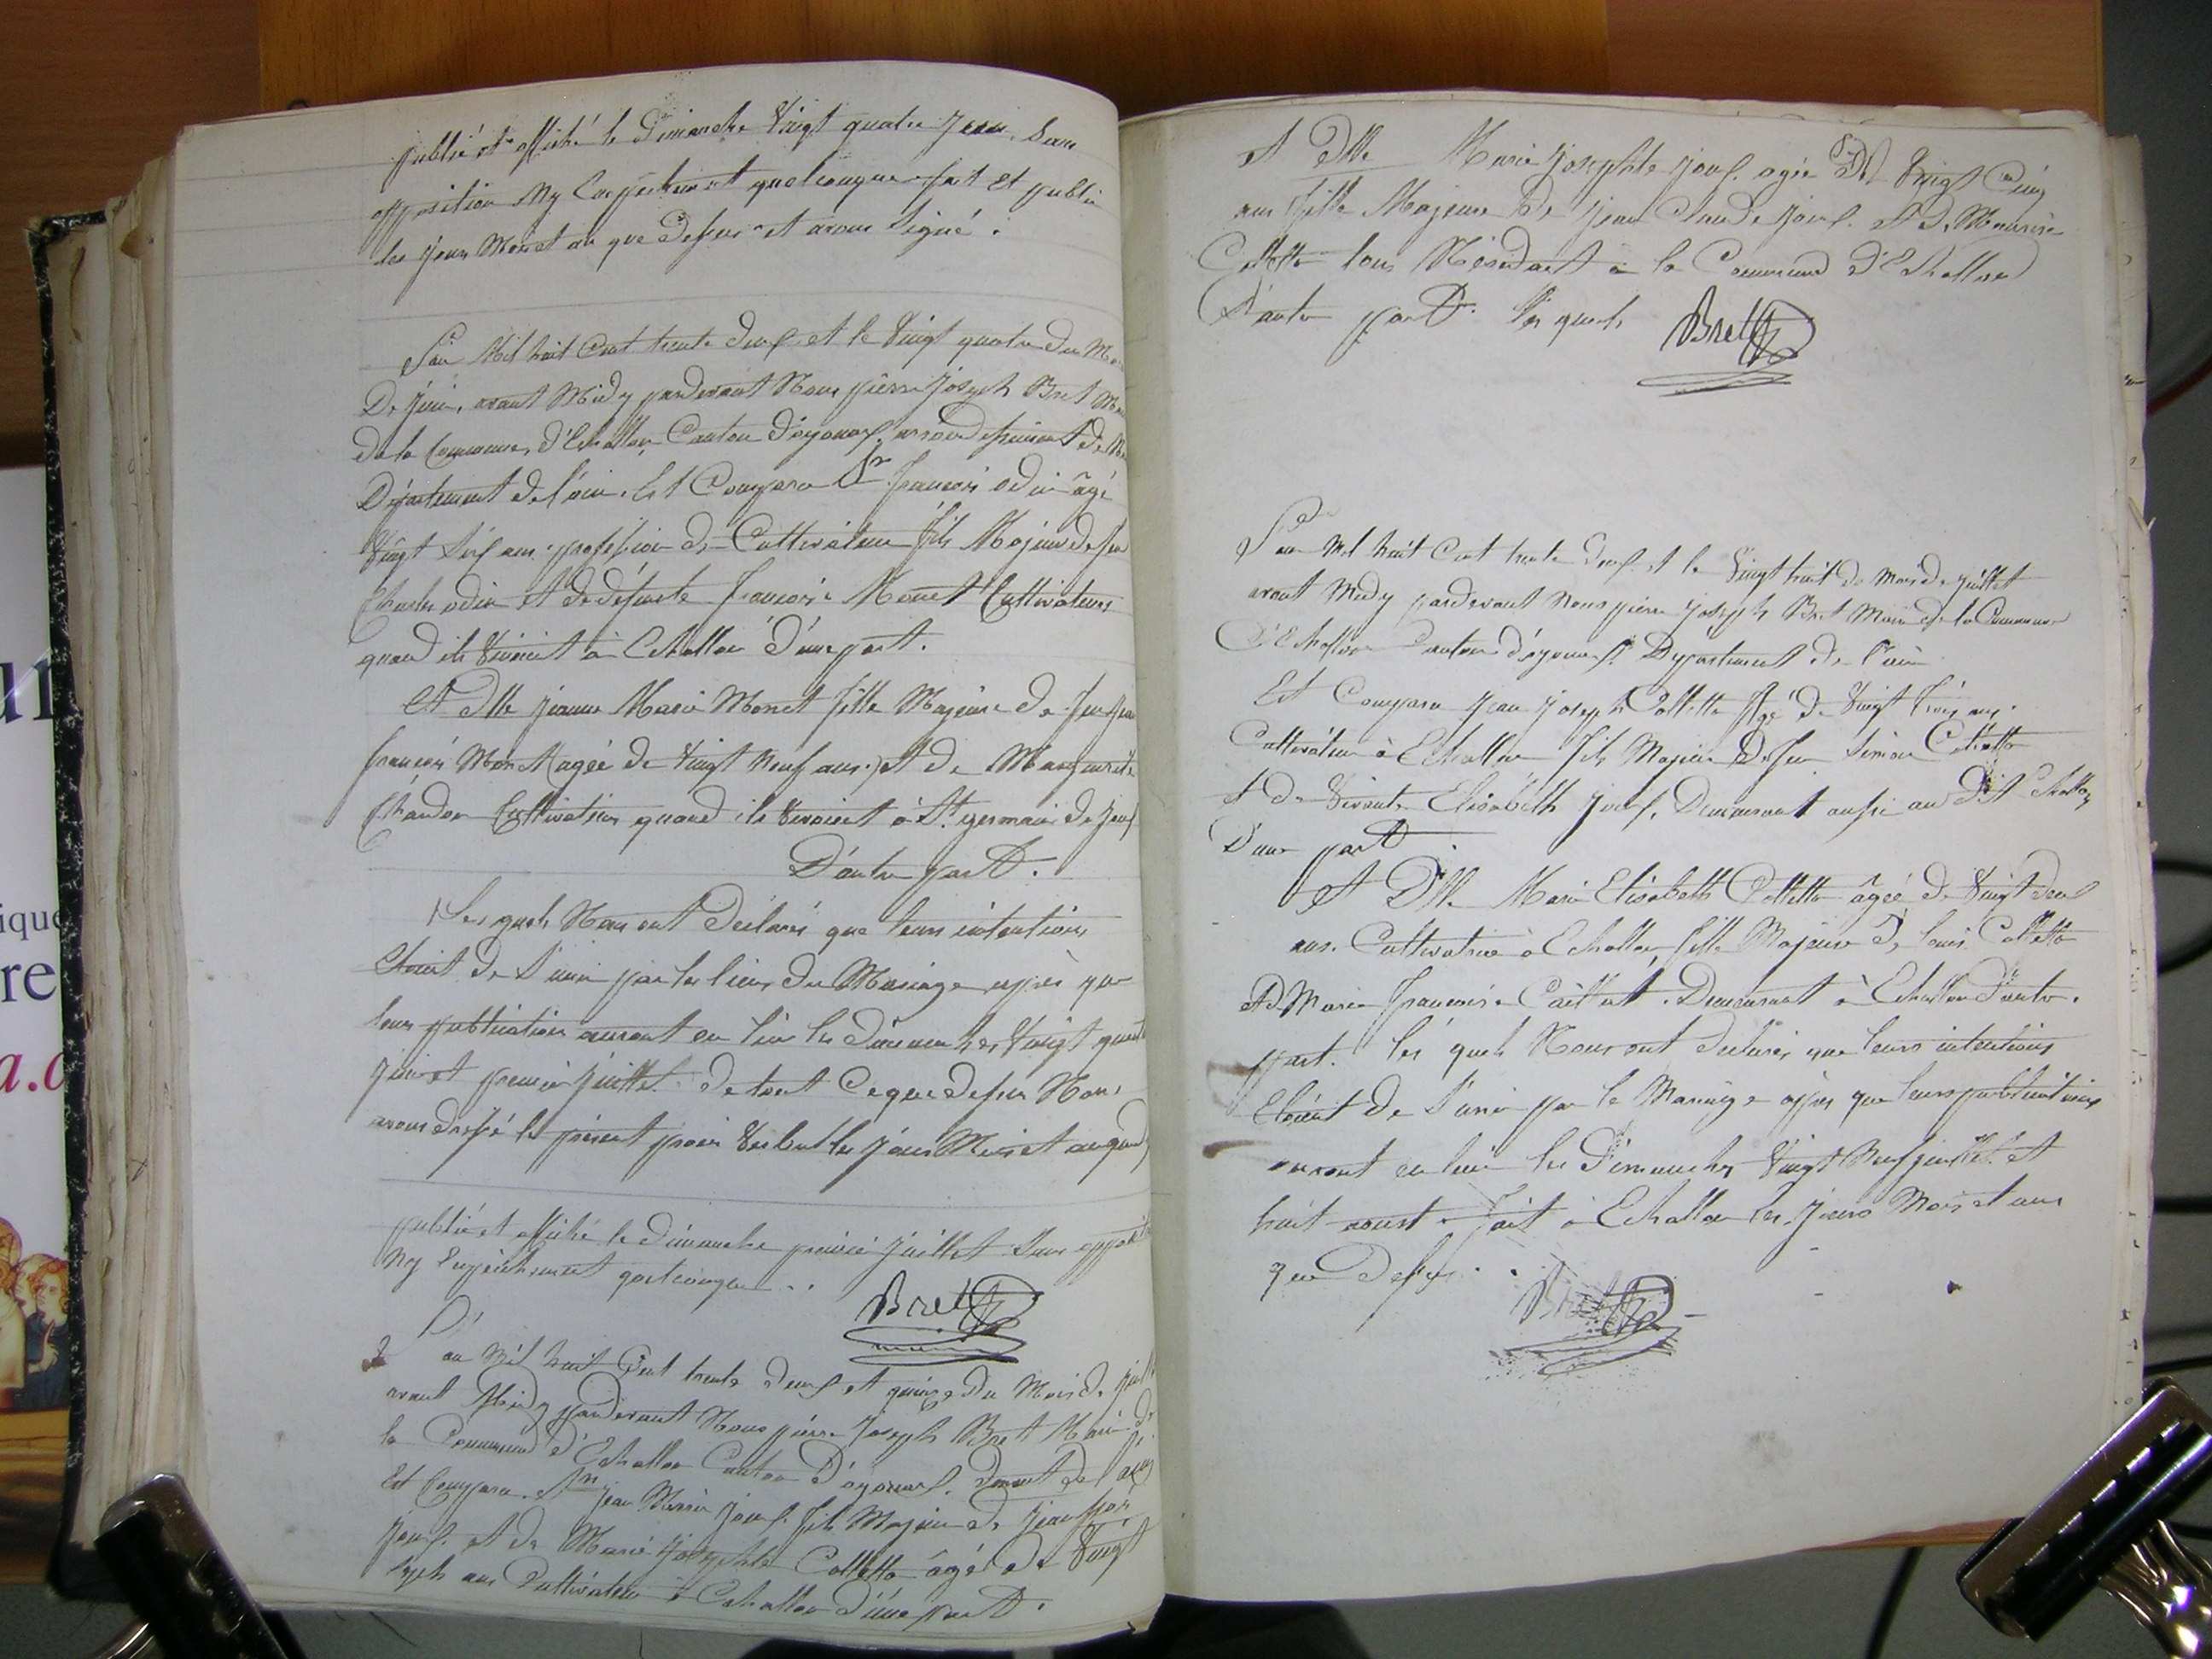 publié et affiché le Dimanche Vingt quatre Juin Sans
opposition Ny Empechement quelconque fait et publié
les Jour Mois et an que dessus et avons Signé.
L'an Mil huit Cent trente deux et le Vingt quatre du Mois
De Juin, avant Midy pardevant Nous pierre Joseph Bret
de la Commune, d'Echallon, Canton d'oyonax, arrondissement de
Département de l'ain. Est Comparu Sr françois odin âgé
Vingt Six ans profession de Cultivateur fils Majeur de feu
Charles odin et de défunte françoise Monet Cultivateurs
quand ils Vivoient à Echallon D'une part.
Et Dlle jeanne Marie Monet fille Majeure De feu
françois Monet (agée de Vingt neuf ans) et de Marguerite
Chandon Cultivateurs quand ils Vivoient à St. germain de Joux
D'autre part.
Les quels Nous ont Déclarés que leurs intentions
Etoient de S'unir par les liens du Mariage après que
leurs publications auront eu lieu les dimanches Vingt quatre
Juin et premier Juillet. De tout Ce que dessus Nous
avons dressé le présent procès Verbal les Jour Mois et an que
publié et affiché le Dimanche premier Juillet Sans
Ny Empechement quelconque ..
Brett
2
L'an Mil huit Cent trente deux et quinze du Mois de
avant Midy pardevant Nous pierre Joseph Bret Maire de
la Commune d'Echallon Canton D'oyonax.
Est Comparu Jean Marie joux. fils Majeur de
joux. et de Marie Josephte Colletta âgé de Vingt
Septs ans Cultivateur à Echallon D'une part.
Et Dlle Marie Josephte Joux. agée De Vingt Cinq
ans fille Majeure de Jean Claude Joux. et de
Colletta tous Résidant à la Commune d'Echallon
D'autre part. les quels Brett
L'an Mil huit Cent trente deux et le Vingt huit du Mois de Juillet
avant Midy pardevant Nous pierre Joseph Bret Maire de la Commune
D'Echallon Canton d'oyonax. Département de l'ain
Est Comparu Jean Joseph Colletta Agé de Vingt trois ans.
Cultivateur à Echallon fils Majeur De feu Simon Colletta
et de Vivante Elisabeth Joux, Demeurant aussi au Dit Echallon
D'une part
Et Dlle Marie Elisabeth Colletta âgée de Vingt deux
ans. Cultivatrice à Echallon, fille Majeure de Louis Colletta
et de Marie françoise Demeurant à Echallon D'autre.
part. les quels Nous ont declarés que leurs intentions
Etoient de S'unir par le Mariage apres que leurs publications
auront eu lieu les Dimanches Vingt Neuf juillet. et
huit aoust. fait à Echallon les Jours Mois et ans
que Dessus. .
Brett